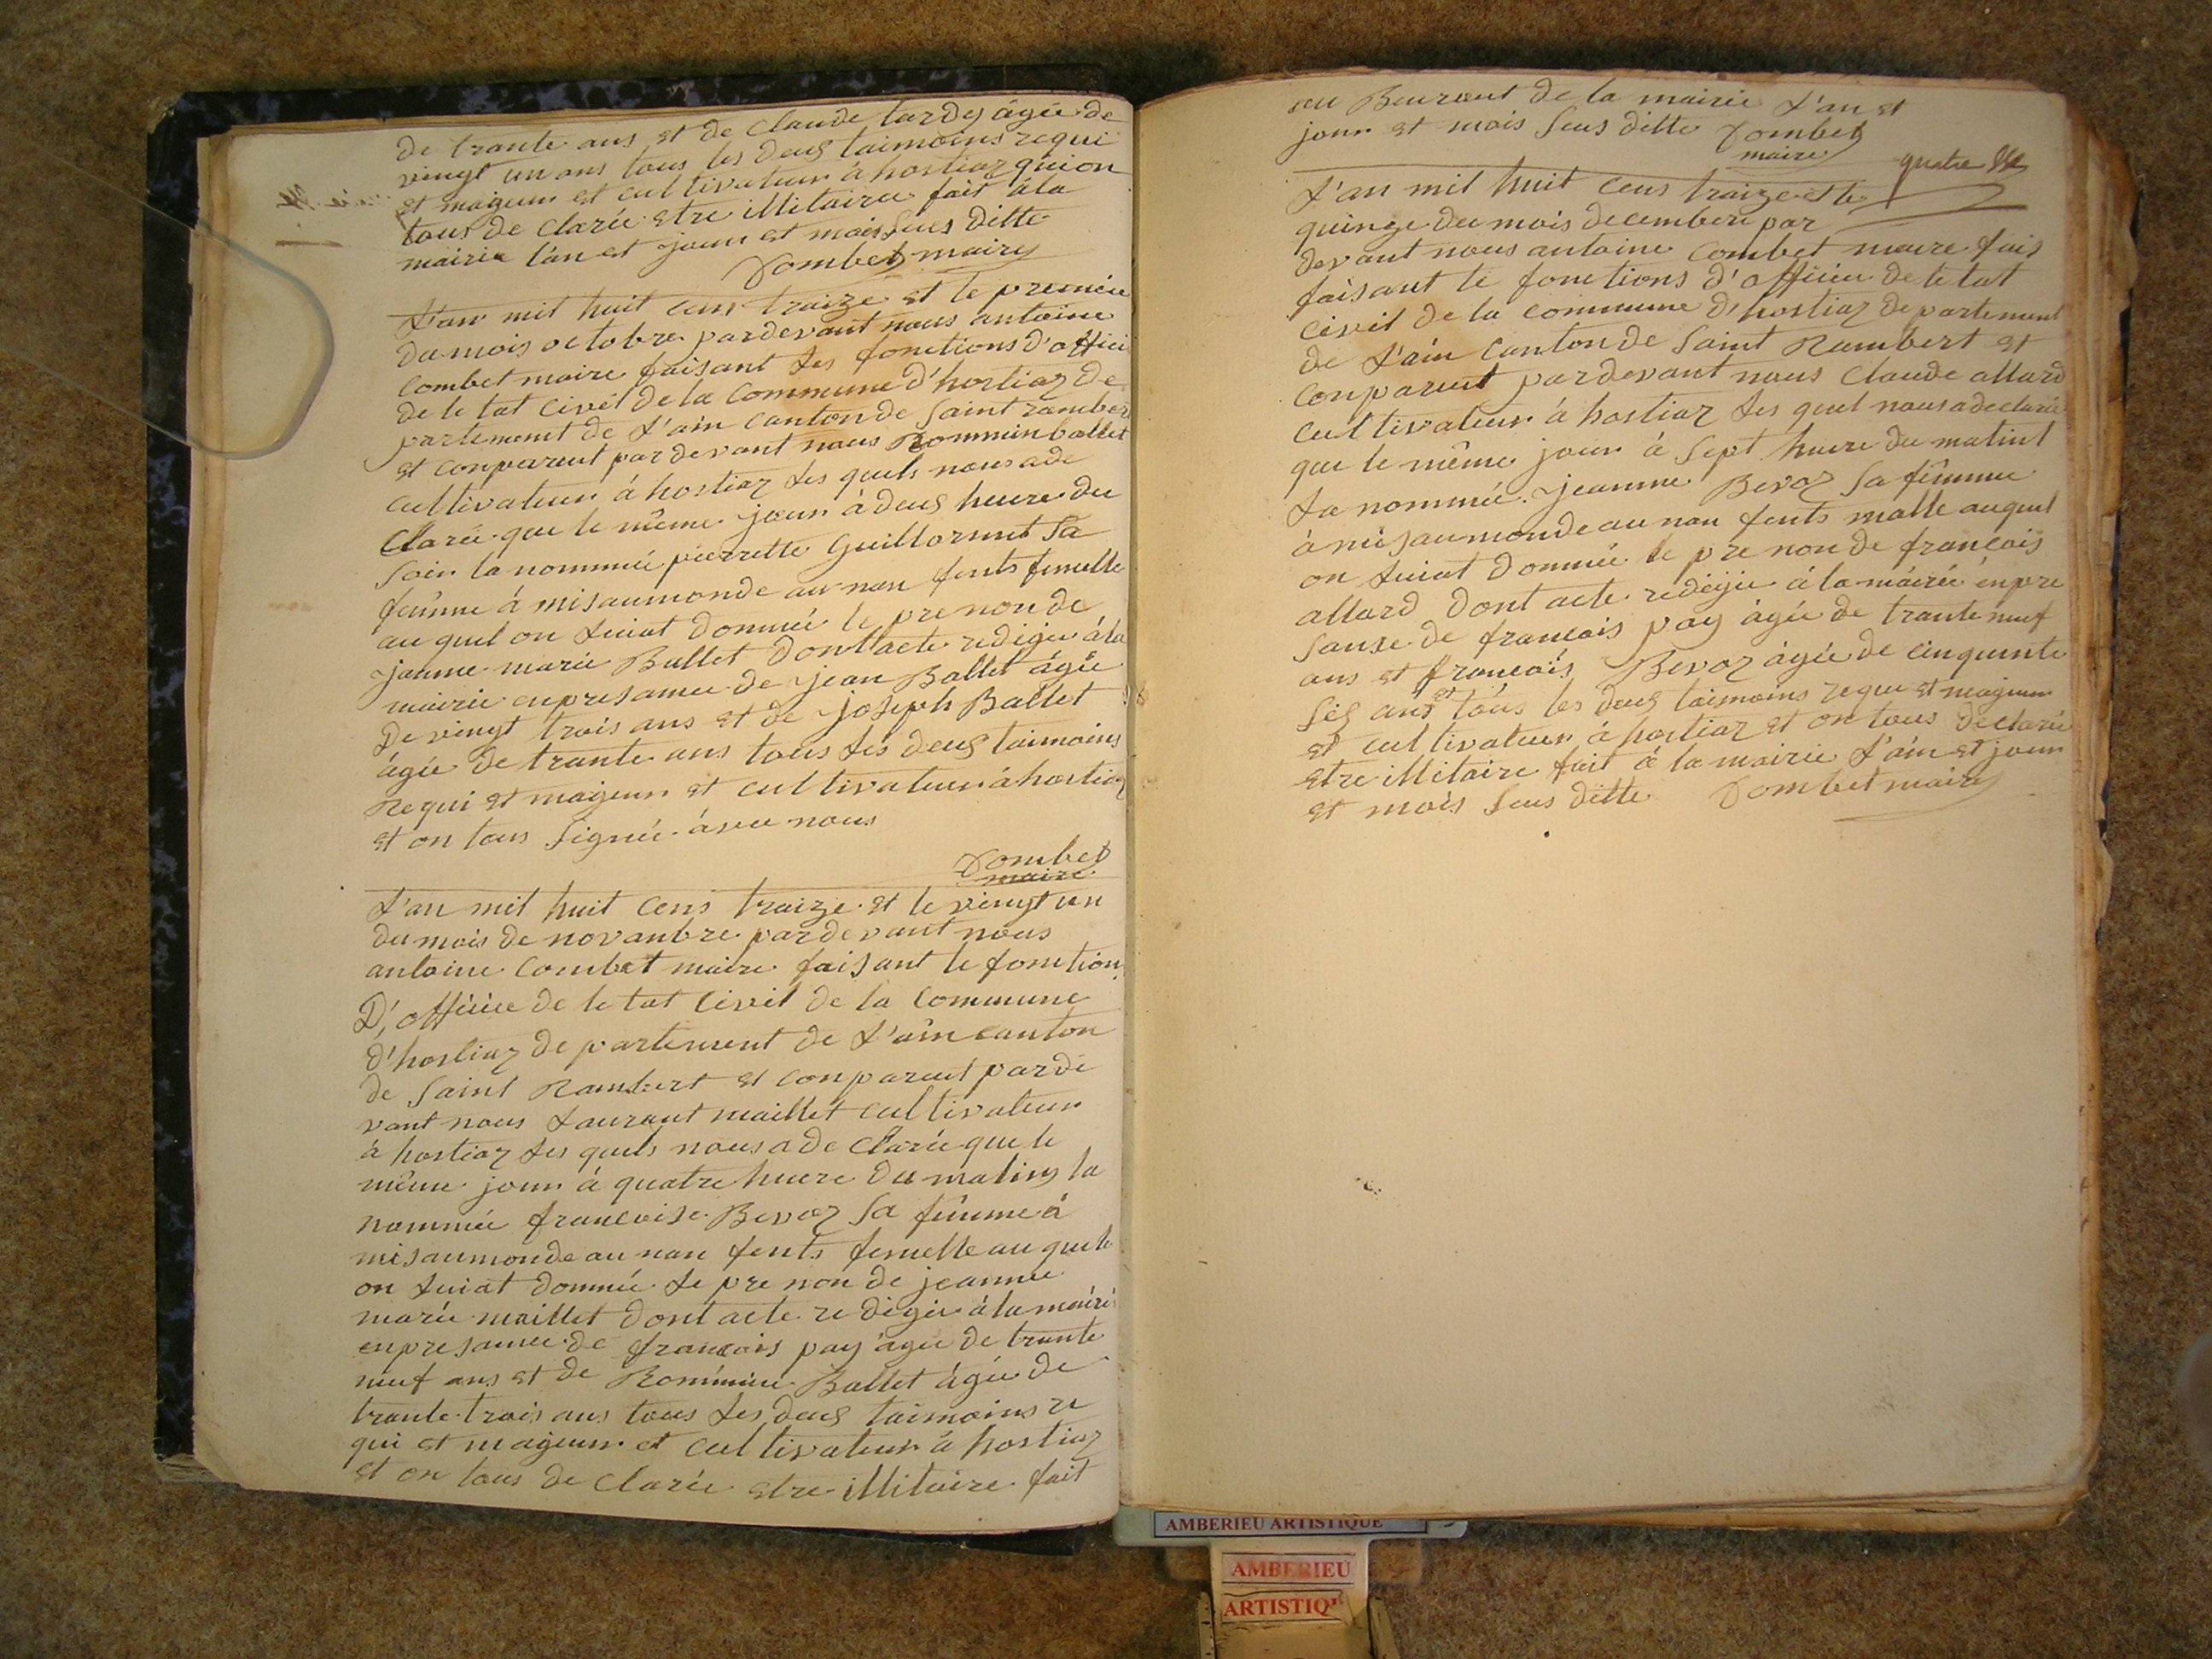 de trante ans et de Claude tardy âgée de
vingt un ans tous les deus taimoins requi
et majeur et cultivateur à hostiaz qui on
tous de clarée etre illitaire fait à la
mairie l'an et jour et mois sus ditte
Combet maire
L'an mil huit cens traize et le premiée
du mois octobre pardevant nous antoine
Combet maire faisant les fonctions d'offici
de le tat civil de la Commune d'hostiaz de
partement de L'ain canton de Saint rambert
et conparrut par devant nous Rommin ballet
cultivateur à hostiaz les quels nous a de
Clarée que le même jour à deus heure du
Soir la nommée pierrette Guillermet Sa
femme à mis aumonde au nan fents femelle
au quel on luiat donnée le pre non de
janne marie Ballet dont acte redigée à la
mairie enpresance de jean Ballet âgée
De vingt trois ans et de joseph Ballet
âgée de trante ans tous les deus taimoins
Requi et majeur et cultivateur à hostiaz
et on tous signée avec nous
Combet
maire
L'an mil huit cens traize et le vingt un
du mois de novanbre pardevant nous
antoine Combet maire faisant le fonction
D'officiee de le tat civil de la Commune
d'hostiaz de partement de L'ain canton
de Saint Rambert et conparrut parde
vant nous Laurant maillet cultivateur
à hostiaz les quels nous a de Clarée que le
même jour à quatre heure du matins la
nommée francoise Bevoz Sa femme à
mis aumonde au nan fents femelle au quele
on luiat donnée le pre non de jeanne
marie maillet dont acte re digée à la mairie
enpresance de francois pay âgée de trante
neuf ans et de Rominee Ballet âgée de
trante trois ans tous les deus taimoins re
qui et majeur et cultivateur à hostiaz
et on tous de Clarée etre illitaire fait
au Beuraut de la mairie L'an et
jour et mois Sus ditte Combet
maire
quatre
L'an mil huit cens traize et le
quinze du mois decembere par
devant nous antoine Combet maire fais
faisant le fonctions d'officiee de le tat
civil de la commune d'hostiaz departement
de L'ain Canton de Saint Rambert et
conparrut pardevant nous Claude allard
cultivateur à hostiaz les quel nous a declarée
que le même jour à Sept heure du matint
La nommée jeanne Bevoz Sa femme
à mis aumonde au nan fents malle auquel
on luiat donnée le pre non de francois
allard dont acte redigée à la mairie enpre
sanse de francois pay âgée de trante neuf
ans et francois Bevoz âgée de cinquante
sis ans et tous les deus taimoins requi et majeur
et cultivateur à hostiaz et on tous declarée
etre illitaire fait à la mairie L'ain et jour
et mois sus ditte Combet maire
AMBERIEU ARTISTIQUE
AMBERIEU
ARTISTIQ